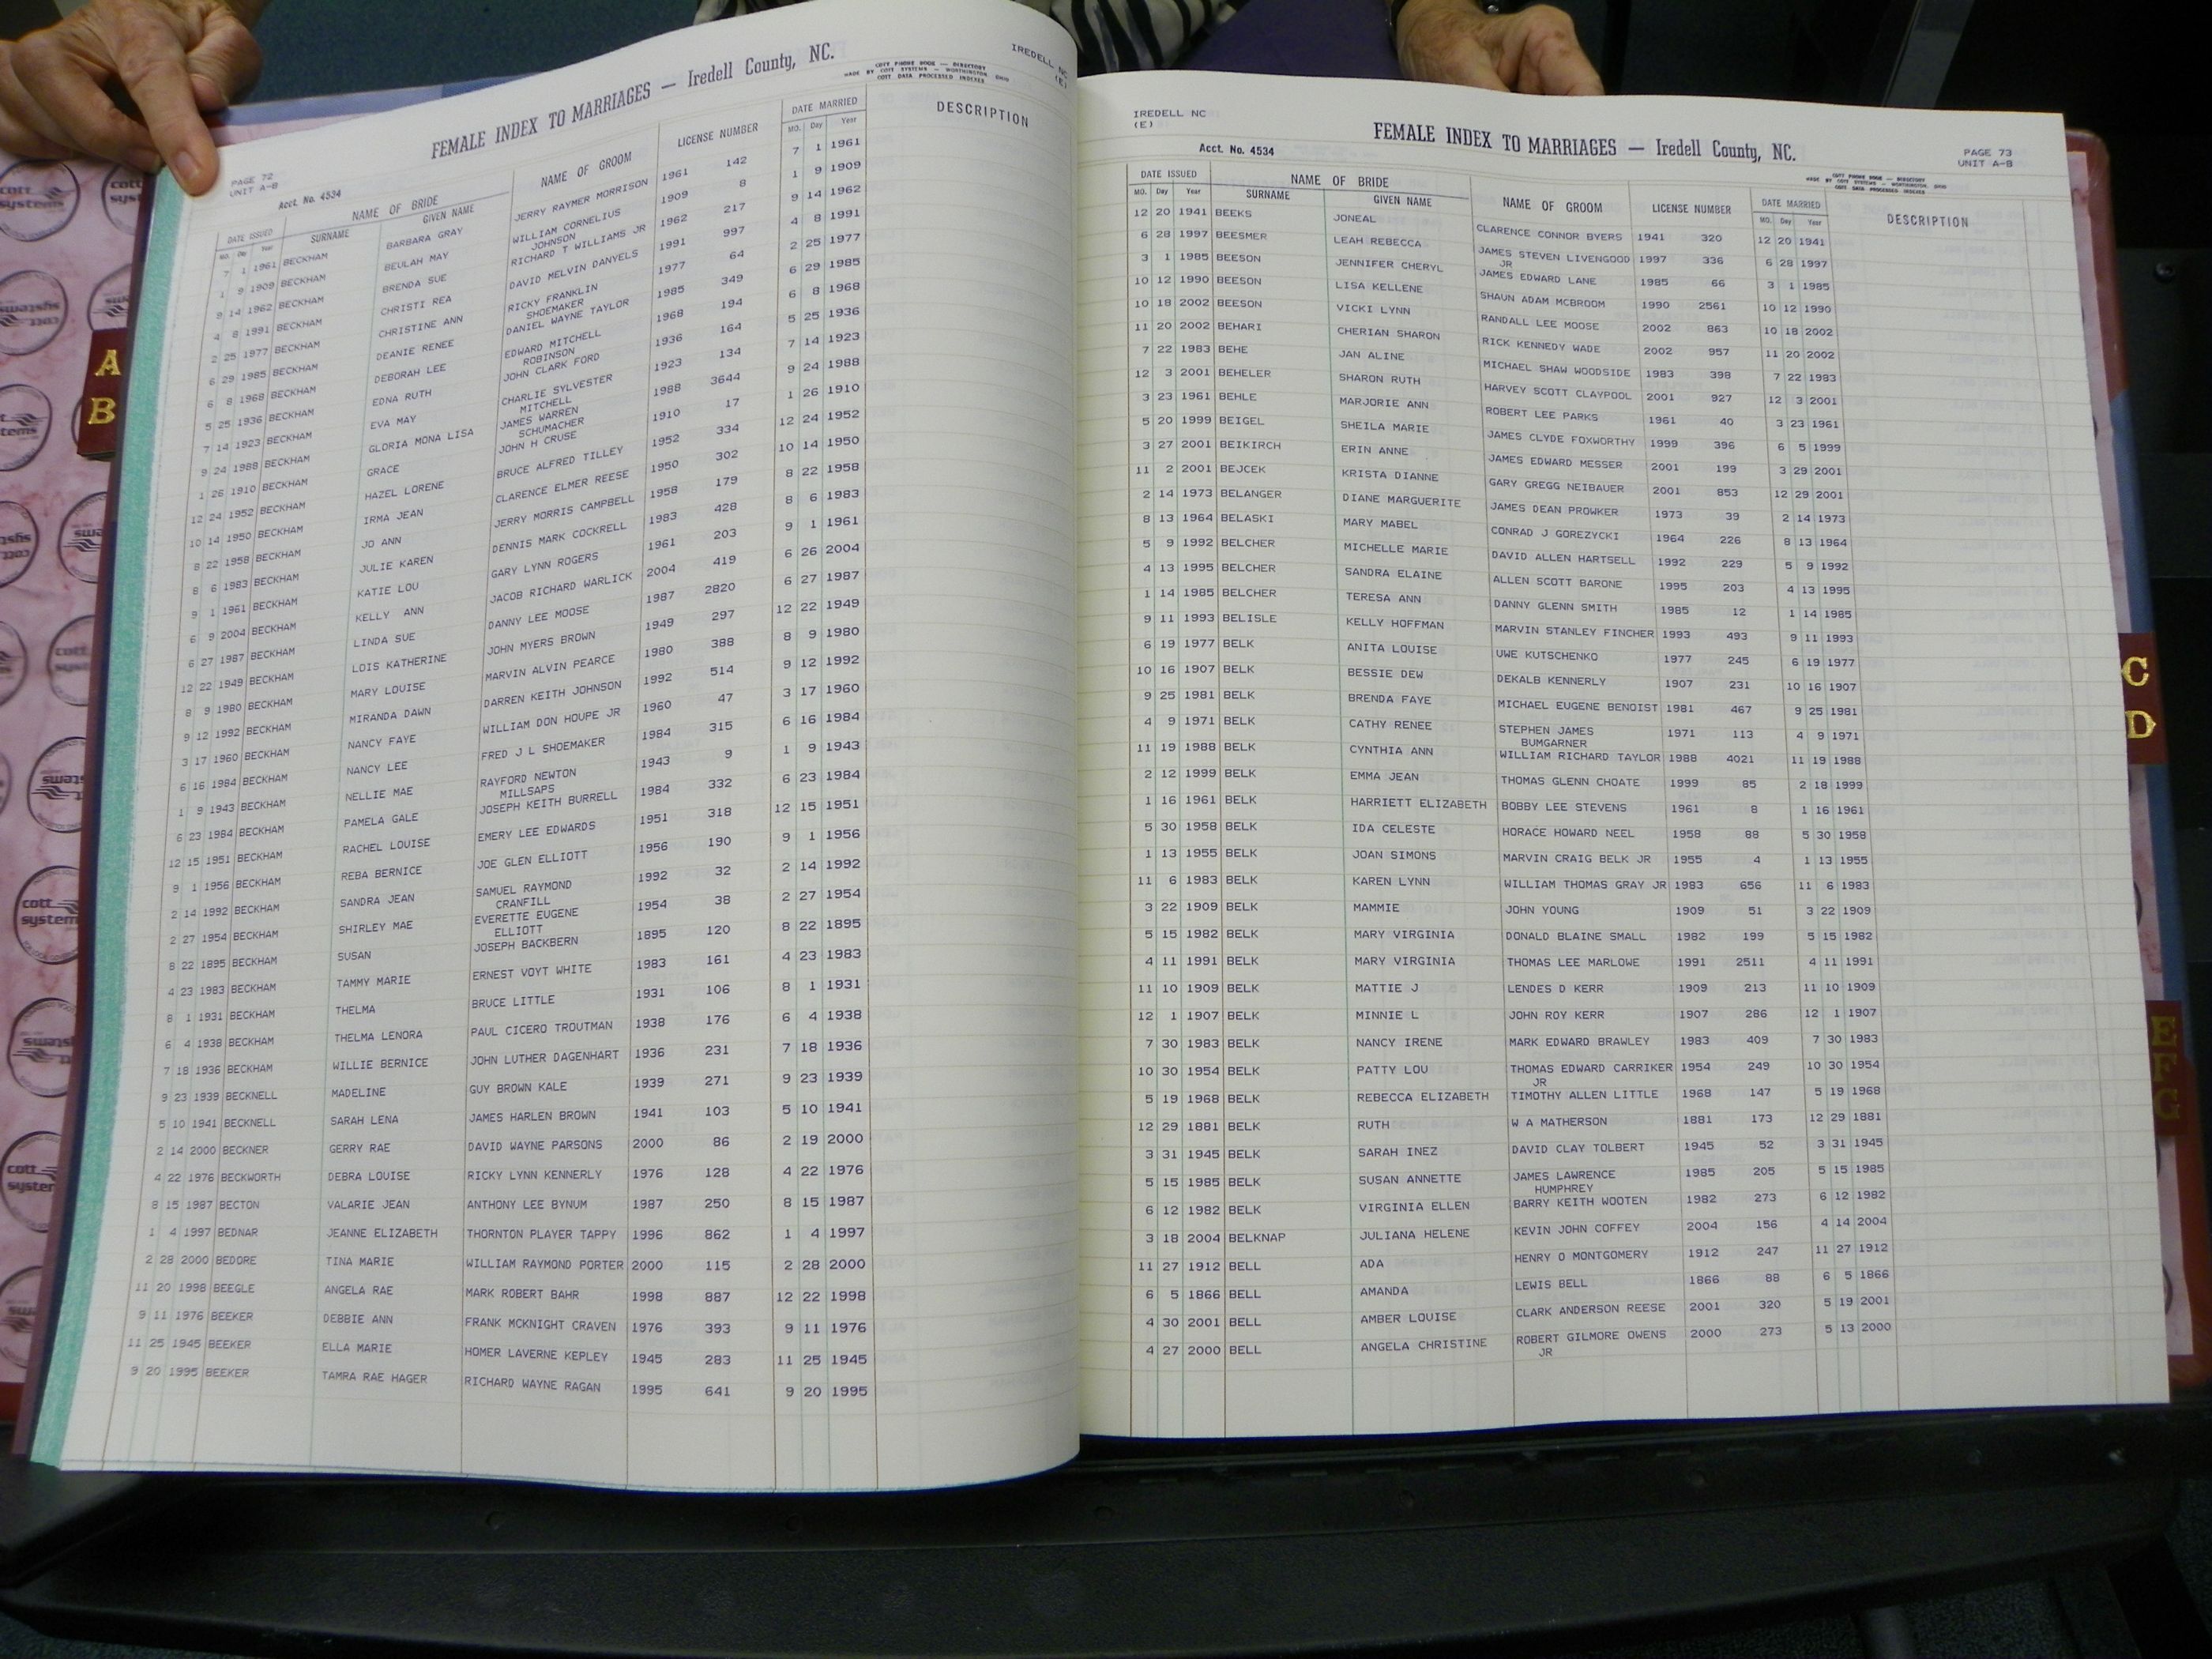 PAGE 72
UNIT A-B
Acct. No. 4534
FEMALE INDEX TO MARRIAGES — Iredell County, NC.
COTT PHONE BOOK — DIRECTORY
MADE BY COTT SYSTEMS — WORTHINGTON, OHIO
COTT DATA PROCESSED INDEXES
IREDELL NC
(E)
DATE ISSUED NAME OF BRIDE NAME OF GROOM LICENSE NUMBER DATE MARRIED DESCRIPTION
MO. Day Year SURNAME GIVEN NAME MO. Day Year
7 1 1961 BECKHAM BARBARA GRAY JERRY RAYMER MORRISON 1961 142 7 1 1961
1 9 1909 BECKHAM BEULAH MAY WILLIAM CORNELIUS 1909 8 1 9 1909
JOHNSON
9 14 1962 BECKHAM BRENDA SUE RICHARD T WILLIAMS JR 1962 217 9 14 1962
4 8 1991 BECKHAM CHRISTI REA DAVID MELVIN DANYELS 1991 997 4 8 1991
2 25 1977 BECKHAM CHRISTINE ANN RICKY FRANKLIN 1977 64 2 25 1977
SHOEMAKER
6 29 1985 BECKHAM DEANIE RENEE DANIEL WAYNE TAYLOR 1985 349 6 29 1985
6 8 1968 BECKHAM DEBORAH LEE EDWARD MITCHELL 1968 194 6 8 1968
ROBINSON
5 25 1936 BECKHAM EDNA RUTH JOHN CLARK FORD 1936 164 5 25 1936
7 14 1923 BECKHAM EVA MAY CHARLIE SYLVESTER 1923 134 7 14 1923
MITCHELL
9 24 1988 BECKHAM GLORIA MONA LISA JAMES WARREN 1988 3644 9 24 1988
SCHUMACHER
1 26 1910 BECKHAM GRACE JOHN H CRUSE 1910 17 1 26 1910
12 24 1952 BECKHAM HAZEL LORENE BRUCE ALFRED TILLEY 1952 334 12 24 1952
10 14 1950 BECKHAM IRMA JEAN CLARENCE ELMER REESE 1950 302 10 14 1950
8 22 1958 BECKHAM JO ANN JERRY MORRIS CAMPBELL 1958 179 8 22 1958
8 6 1983 BECKHAM JULIE KAREN DENNIS MARK COCKRELL 1983 428 8 6 1983
9 1 1961 BECKHAM KATIE LOU GARY LYNN ROGERS 1961 203 9 1 1961
6 9 2004 BECKHAM KELLY ANN JACOB RICHARD WARLICK 2004 419 6 26 2004
6 27 1987 BECKHAM LINDA SUE DANNY LEE MOOSE 1987 2820 6 27 1987
12 22 1949 BECKHAM LOIS KATHERINE JOHN MYERS BROWN 1949 297 12 22 1949
8 9 1980 BECKHAM MARY LOUISE MARVIN ALVIN PEARCE 1980 388 8 9 1980
9 12 1992 BECKHAM MIRANDA DAWN DARREN KEITH JOHNSON 1992 514 9 12 1992
3 17 1960 BECKHAM NANCY FAYE WILLIAM DON HOUPE JR 1960 47 3 17 1960
6 16 1984 BECKHAM NANCY LEE FRED J L SHOEMAKER 1984 315 6 16 1984
1 9 1943 BECKHAM NELLIE MAE RAYFORD NEWTON 1943 9 1 9 1943
MILLSAPS
6 23 1984 BECKHAM PAMELA GALE JOSEPH KEITH BURRELL 1984 332 6 23 1984
12 15 1951 BECKHAM RACHEL LOUISE EMERY LEE EDWARDS 1951 318 12 15 1951
9 1 1956 BECKHAM REBA BERNICE JOE GLEN ELLIOTT 1956 190 9 1 1956
2 14 1992 BECKHAM SANDRA JEAN SAMUEL RAYMOND 1992 32 2 14 1992
CRANFILL
2 27 1954 BECKHAM SHIRLEY MAE EVERETTE EUGENE 1954 38 2 27 1954
ELLIOTT
8 22 1895 BECKHAM SUSAN JOSEPH BACKBERN 1895 120 8 22 1895
4 23 1983 BECKHAM TAMMY MARIE ERNEST VOYT WHITE 1983 161 4 23 1983
8 1 1931 BECKHAM THELMA BRUCE LITTLE 1931 106 8 1 1931
6 4 1938 BECKHAM THELMA LENORA PAUL CICERO TROUTMAN 1938 176 6 4 1938
7 18 1936 BECKHAM WILLIE BERNICE JOHN LUTHER DAGENHART 1936 231 7 18 1936
9 23 1939 BECKNELL MADELINE GUY BROWN KALE 1939 271 9 23 1939
5 10 1941 BECKNELL SARAH LENA JAMES HARLEN BROWN 1941 103 5 10 1941
2 14 2000 BECKNER GERRY RAE DAVID WAYNE PARSONS 2000 86 2 19 2000
4 22 1976 BECKWORTH DEBRA LOUISE RICKY LYNN KENNERLY 1976 128 4 22 1976
8 15 1987 BECTON VALARIE JEAN ANTHONY LEE BYNUM 1987 250 8 15 1987
1 4 1997 BEDNAR JEANNE ELIZABETH THORNTON PLAYER TAPPY 1996 862 1 4 1997
2 28 2000 BEDORE TINA MARIE WILLIAM RAYMOND PORTER 2000 115 2 28 2000
11 20 1998 BEEGLE ANGELA RAE MARK ROBERT BAHR 1998 887 12 22 1998
9 11 1976 BEEKER DEBBIE ANN FRANK MCKNIGHT CRAVEN 1976 393 9 11 1976
11 25 1945 BEEKER ELLA MARIE HOMER LAVERNE KEPLEY 1945 283 11 25 1945
9 20 1995 BEEKER TAMRA RAE HAGER RICHARD WAYNE RAGAN 1995 641 9 20 1995
IREDELL NC
(E)
Acct. No. 4534
FEMALE INDEX TO MARRIAGES — Iredell County, NC.
PAGE 73
UNIT A-B
COTT PHONE BOOK — DIRECTORY
MADE BY COTT SYSTEMS — WORTHINGTON, OHIO
COTT DATA PROCESSED INDEXES
DATE ISSUED NAME OF BRIDE NAME OF GROOM LICENSE NUMBER DATE MARRIED DESCRIPTION
MO. Day Year SURNAME GIVEN NAME MO. Day Year
12 20 1941 BEEKS JONEAL CLARENCE CONNOR BYERS 1941 320 12 20 1941
6 28 1997 BEESMER LEAH REBECCA JAMES STEVEN LIVENGOOD 1997 336 6 28 1997
JR
3 1 1985 BEESON JENNIFER CHERYL JAMES EDWARD LANE 1985 66 3 1 1985
10 12 1990 BEESON LISA KELLENE SHAUN ADAM MCBROOM 1990 2561 10 12 1990
10 18 2002 BEESON VICKI LYNN RANDALL LEE MOOSE 2002 863 10 18 2002
11 20 2002 BEHARI CHERIAN SHARON RICK KENNEDY WADE 2002 957 11 20 2002
7 22 1983 BEHE JAN ALINE MICHAEL SHAW WOODSIDE 1983 398 7 22 1983
12 3 2001 BEHELER SHARON RUTH HARVEY SCOTT CLAYPOOL 2001 927 12 3 2001
3 23 1961 BEHLE MARJORIE ANN ROBERT LEE PARKS 1961 40 3 23 1961
5 20 1999 BEIGEL SHEILA MARIE JAMES CLYDE FOXWORTHY 1999 396 6 5 1999
3 27 2001 BEIKIRCH ERIN ANNE JAMES EDWARD MESSER 2001 199 3 29 2001
11 2 2001 BEJCEK KRISTA DIANNE GARY GREGG NEIBAUER 2001 853 12 29 2001
2 14 1973 BELANGER DIANE MARGUERITE JAMES DEAN PROWKER 1973 39 2 14 1973
8 13 1964 BELASKI MARY MABEL CONRAD J GOREZYCKI 1964 226 8 13 1964
5 9 1992 BELCHER MICHELLE MARIE DAVID ALLEN HARTSELL 1992 229 5 9 1992
4 13 1995 BELCHER SANDRA ELAINE ALLEN SCOTT BARONE 1995 203 4 13 1995
1 14 1985 BELCHER TERESA ANN DANNY GLENN SMITH 1985 12 1 14 1985
9 11 1993 BELISLE KELLY HOFFMAN MARVIN STANLEY FINCHER 1993 493 9 11 1993
6 19 1977 BELK ANITA LOUISE UWE KUTSCHENKO 1977 245 6 19 1977
10 16 1907 BELK BESSIE DEW DEKALB KENNERLY 1907 231 10 16 1907
9 25 1981 BELK BRENDA FAYE MICHAEL EUGENE BENOIST 1981 467 9 25 1981
4 9 1971 BELK CATHY RENEE STEPHEN JAMES 1971 113 4 9 1971
BUMGARNER
11 19 1988 BELK CYNTHIA ANN WILLIAM RICHARD TAYLOR 1988 4021 11 19 1988
2 12 1999 BELK EMMA JEAN THOMAS GLENN CHOATE 1999 85 2 18 1999
1 16 1961 BELK HARRIETT ELIZABETH BOBBY LEE STEVENS 1961 8 1 16 1961
5 30 1958 BELK IDA CELESTE HORACE HOWARD NEEL 1958 88 5 30 1958
1 13 1955 BELK JOAN SIMONS MARVIN CRAIG BELK JR 1955 4 1 13 1955
11 6 1983 BELK KAREN LYNN WILLIAM THOMAS GRAY JR 1983 656 11 6 1983
3 22 1909 BELK MAMMIE JOHN YOUNG 1909 51 3 22 1909
5 15 1982 BELK MARY VIRGINIA DONALD BLAINE SMALL 1982 199 5 15 1982
4 11 1991 BELK MARY VIRGINIA THOMAS LEE MARLOWE 1991 2511 4 11 1991
11 10 1909 BELK MATTIE J LENDES D KERR 1909 213 11 10 1909
12 1 1907 BELK MINNIE L JOHN ROY KERR 1907 286 12 1 1907
7 30 1983 BELK NANCY IRENE MARK EDWARD BRAWLEY 1983 409 7 30 1983
10 30 1954 BELK PATTY LOU THOMAS EDWARD CARRIKER 1954 249 10 30 1954
JR
5 19 1968 BELK REBECCA ELIZABETH TIMOTHY ALLEN LITTLE 1968 147 5 19 1968
12 29 1881 BELK RUTH W A MATHERSON 1881 173 12 29 1881
3 31 1945 BELK SARAH INEZ DAVID CLAY TOLBERT 1945 52 3 31 1945
5 15 1985 BELK SUSAN ANNETTE JAMES LAWRENCE 1985 205 5 15 1985
HUMPHREY
6 12 1982 BELK VIRGINIA ELLEN BARRY KEITH WOOTEN 1982 273 6 12 1982
3 18 2004 BELKNAP JULIANA HELENE KEVIN JOHN COFFEY 2004 156 4 14 2004
11 27 1912 BELL ADA HENRY O MONTGOMERY 1912 247 11 27 1912
6 5 1866 BELL AMANDA LEWIS BELL 1866 88 6 5 1866
4 30 2001 BELL AMBER LOUISE CLARK ANDERSON REESE 2001 320 5 19 2001
4 27 2000 BELL ANGELA CHRISTINE ROBERT GILMORE OWENS 2000 273 5 13 2000
JR
A
B
C
D
E
F
G
cott
systems